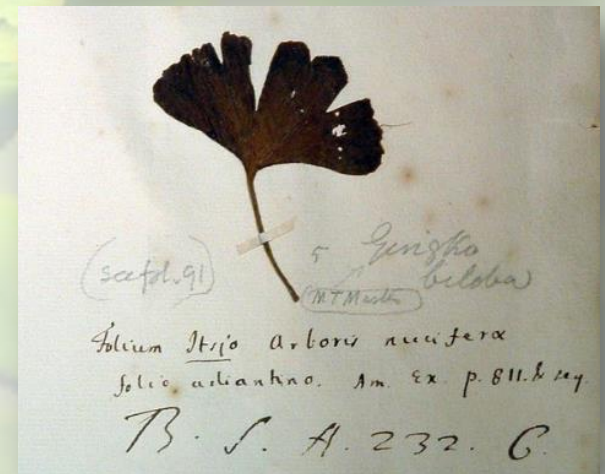 (see fol. 91)
5 Gingko
biloba
Folium Itsjo Arboris nuciferæ
folio adiantino. Am. Ex. p. 811. & seq.
B. S. A. 232. C.